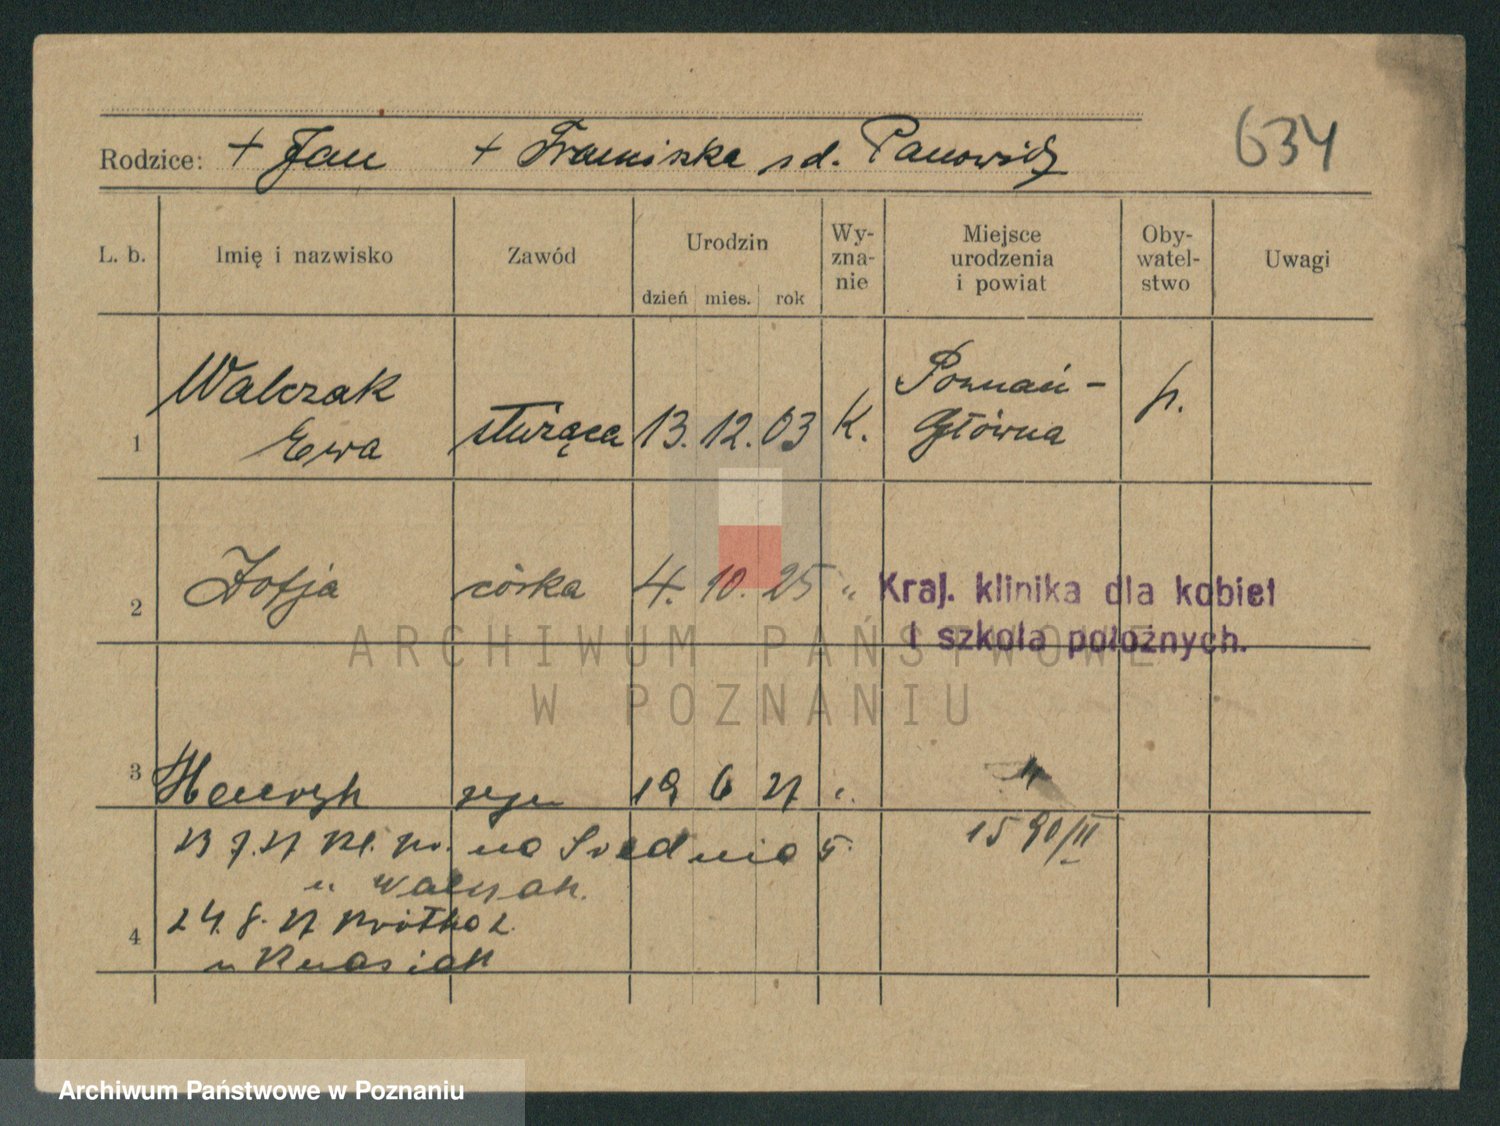 634
Rodzice: + Jan + Franciszka z d. Panowicz
L. b. Imię i nazwisko Zawód Urodzin dzień mies. rok Wy-zna-nie Miejsce urodzenia i powiat Oby-watel-stwo Uwagi
1 Walczak Ewa służąca 13. 12. 03 K. Poznań - Główna p.
2 Zofja córka 4. 10. 25 "
Kraj. klinika dla kobiet
i szkoła położnych.
3 Henryk syn 19 6 27 " "
23 7. 27 Kl. pr. na Średnia 5.
1590/III
u Walczak.
4 24. 8. 27 Krótka 2.
u Kwasiak
ARCHIWUM PAŃSTWOWE
W POZNANIU
Archiwum Państwowe w Poznaniu